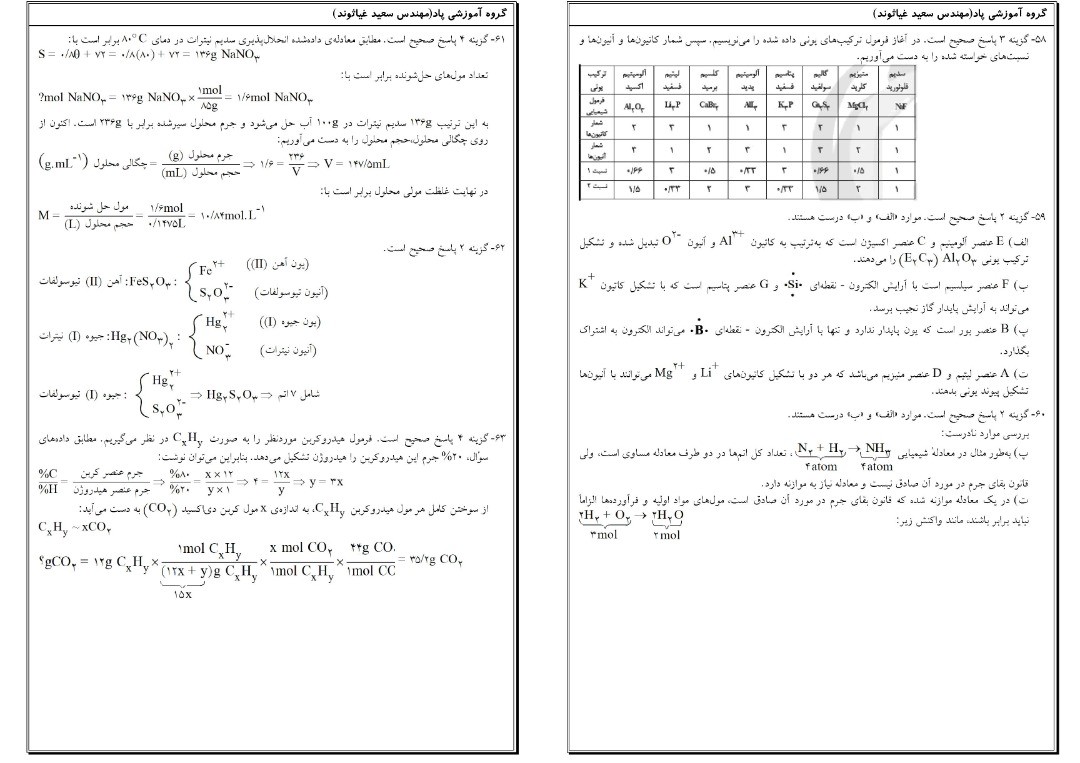 گروه آموزشی پاد(مهندس سعید غیاثوند)
۵۸- گزینه ۳ پاسخ صحیح است. در آغاز فرمول ترکیب‌های یونی داده شده را می‌نویسیم. سپس شمار کاتیون‌ها و آنیون‌ها و
نسبت‌های خواسته شده را به دست می‌آوریم.
ترکیب یونی | آلومینیم اکسید | لیتیم فسفید | کلسیم برمید | آلومینیم یدید | پتاسیم فسفید | گالیم سولفید | منیزیم کلرید | سدیم فلوئورید
فرمول شیمیایی | Al₂O₃ | Li₃P | CaBr₂ | AlI₃ | K₃P | Ga₂S₃ | MgCl₂ | NaF
شمار کاتیون‌ها | ۲ | ۳ | ۱ | ۱ | ۳ | ۲ | ۱ | ۱
شمار آنیون‌ها | ۳ | ۱ | ۲ | ۳ | ۱ | ۳ | ۲ | ۱
نسبت ۱ | ۰/۶۶ | ۳ | ۰/۵ | ۰/۳۳ | ۳ | ۰/۶۶ | ۰/۵ | ۱
نسبت ۲ | ۱/۵ | ۰/۳۳ | ۲ | ۳ | ۰/۳۳ | ۱/۵ | ۲ | ۱
۵۹- گزینه ۲ پاسخ صحیح است. موارد «الف» و «ب» درست هستند.
الف) E عنصر آلومینیم و C عنصر اکسیژن است که به‌ترتیب به کاتیون Al³⁺ و آنیون O²⁻ تبدیل شده و تشکیل
ترکیب یونی Al₂O₃ (E₂C₃) را می‌دهند.
ب) F عنصر سیلسیم است با آرایش الکترون - نقطه‌ای ·Si· و G عنصر پتاسیم است که با تشکیل کاتیون K⁺
می‌تواند به آرایش پایدار گاز نجیب برسد.
پ) B عنصر بور است که یون پایدار ندارد و تنها با آرایش الکترون - نقطه‌ای ·B· می‌تواند الکترون به اشتراک
بگذارد.
ت) A عنصر لیتیم و D عنصر منیزیم می‌باشد که هر دو با تشکیل کاتیون‌های Li⁺ و Mg²⁺ می‌توانند با آنیون‌ها
تشکیل پیوند یونی بدهند.
۶۰- گزینه ۲ پاسخ صحیح است. موارد «الف» و «ب» درست هستند.
بررسی موارد نادرست:
پ) به‌طور مثال در معادلهٔ شیمیایی N₂ + H₂ → NH₃، تعداد کل اتم‌ها در دو طرف معادله مساوی است، ولی
۴atom ۴atom
قانون بقای جرم در مورد آن صادق نیست و معادله نیاز به موازنه دارد.
ت) در یک معادله موازنه شده که قانون بقای جرم در مورد آن صادق است، مول‌های مواد اولیه و فرآورده‌ها الزاماً
نباید برابر باشند، مانند واکنش زیر: ۲H₂ + O₂ → ۲H₂O
۳mol ۲mol
گروه آموزشی پاد(مهندس سعید غیاثوند)
۶۱- گزینه ۴ پاسخ صحیح است. مطابق معادله‌ی داده‌شده انحلال‌پذیری سدیم نیترات در دمای ۸۰°C برابر است با:
S = ۰/۸θ + ۷۲ = ۰/۸(۸۰) + ۷۲ = ۱۳۶g NaNO₃
تعداد مول‌های حل‌شونده برابر است با:
?mol NaNO₃ = ۱۳۶g NaNO₃ × ۱mol/۸۵g = ۱/۶mol NaNO₃
به این ترتیب ۱۳۶g سدیم نیترات در ۱۰۰g آب حل می‌شود و جرم محلول سیرشده برابر با ۲۳۶g است. اکنون از
روی چگالی محلول،حجم محلول را به دست می‌آوریم:
(g.mL⁻¹) چگالی محلول = جرم محلول (g) / حجم محلول (mL) ⇒ ۱/۶ = ۲۳۶/V ⇒ V = ۱۴۷/۵mL
در نهایت غلظت مولی محلول برابر است با:
M = مول حل شونده / حجم محلول (L) = ۱/۶mol / ۰/۱۴۷۵L = ۱۰/۸۴mol.L⁻¹
۶۲- گزینه ۲ پاسخ صحیح است.
آهن (II) تیوسولفات :FeS₂O₃: { Fe²⁺ (یون آهن (II))
S₂O₃²⁻ (آنیون تیوسولفات)
جیوه (I) نیترات :Hg₂(NO₃)₂: { Hg₂²⁺ (یون جیوه (I))
NO₃⁻ (آنیون نیترات)
جیوه (I) تیوسولفات : { Hg₂²⁺ S₂O₃²⁻ ⇒ Hg₂S₂O₃ ⇒ شامل ۷ اتم
۶۳- گزینه ۴ پاسخ صحیح است. فرمول هیدروکربن موردنظر را به صورت CₓHᵧ در نظر می‌گیریم. مطابق داده‌های
سؤال، ۲۰% جرم این هیدروکربن را هیدروژن تشکیل می‌دهد. بنابراین می‌توان نوشت:
%C/%H = جرم عنصر کربن / جرم عنصر هیدروژن ⇒ %۸۰/%۲۰ = x×۱۲ / y×۱ ⇒ ۴ = ۱۲x/y ⇒ y = ۳x
از سوختن کامل هر مول هیدروکربن CₓHᵧ، به اندازه‌ی x مول کربن دی‌اکسید (CO₂) به دست می‌آید:
CₓHᵧ ~ xCO₂
؟gCO₂ = ۱۲g CₓHᵧ × ۱mol CₓHᵧ / (۱۲x + y)g CₓHᵧ × x mol CO₂ / ۱mol CₓHᵧ × ۴۴g CO / ۱mol CC = ۳۵/۲g CO₂
۱۵x